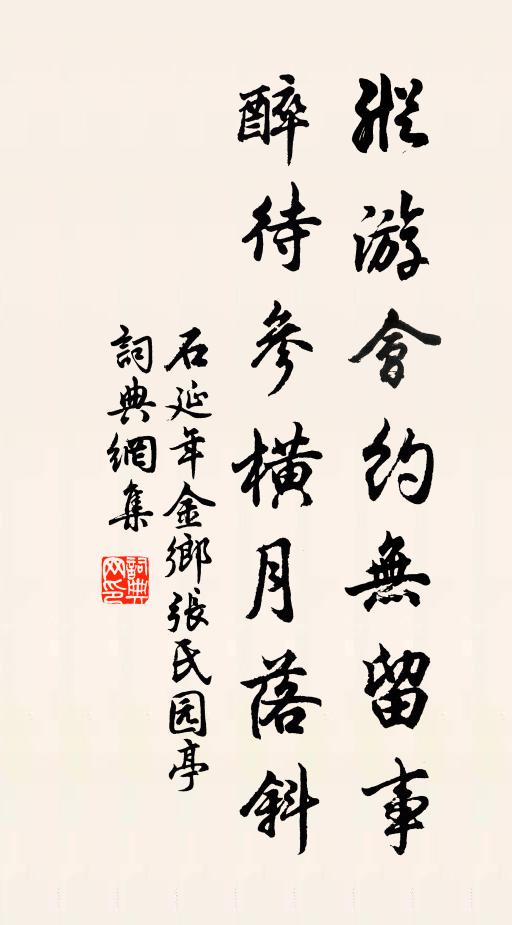 縱游會約無留事
醉待參橫月落斜
石延年金鄉張氏园亭
詞典網集
詞典網印